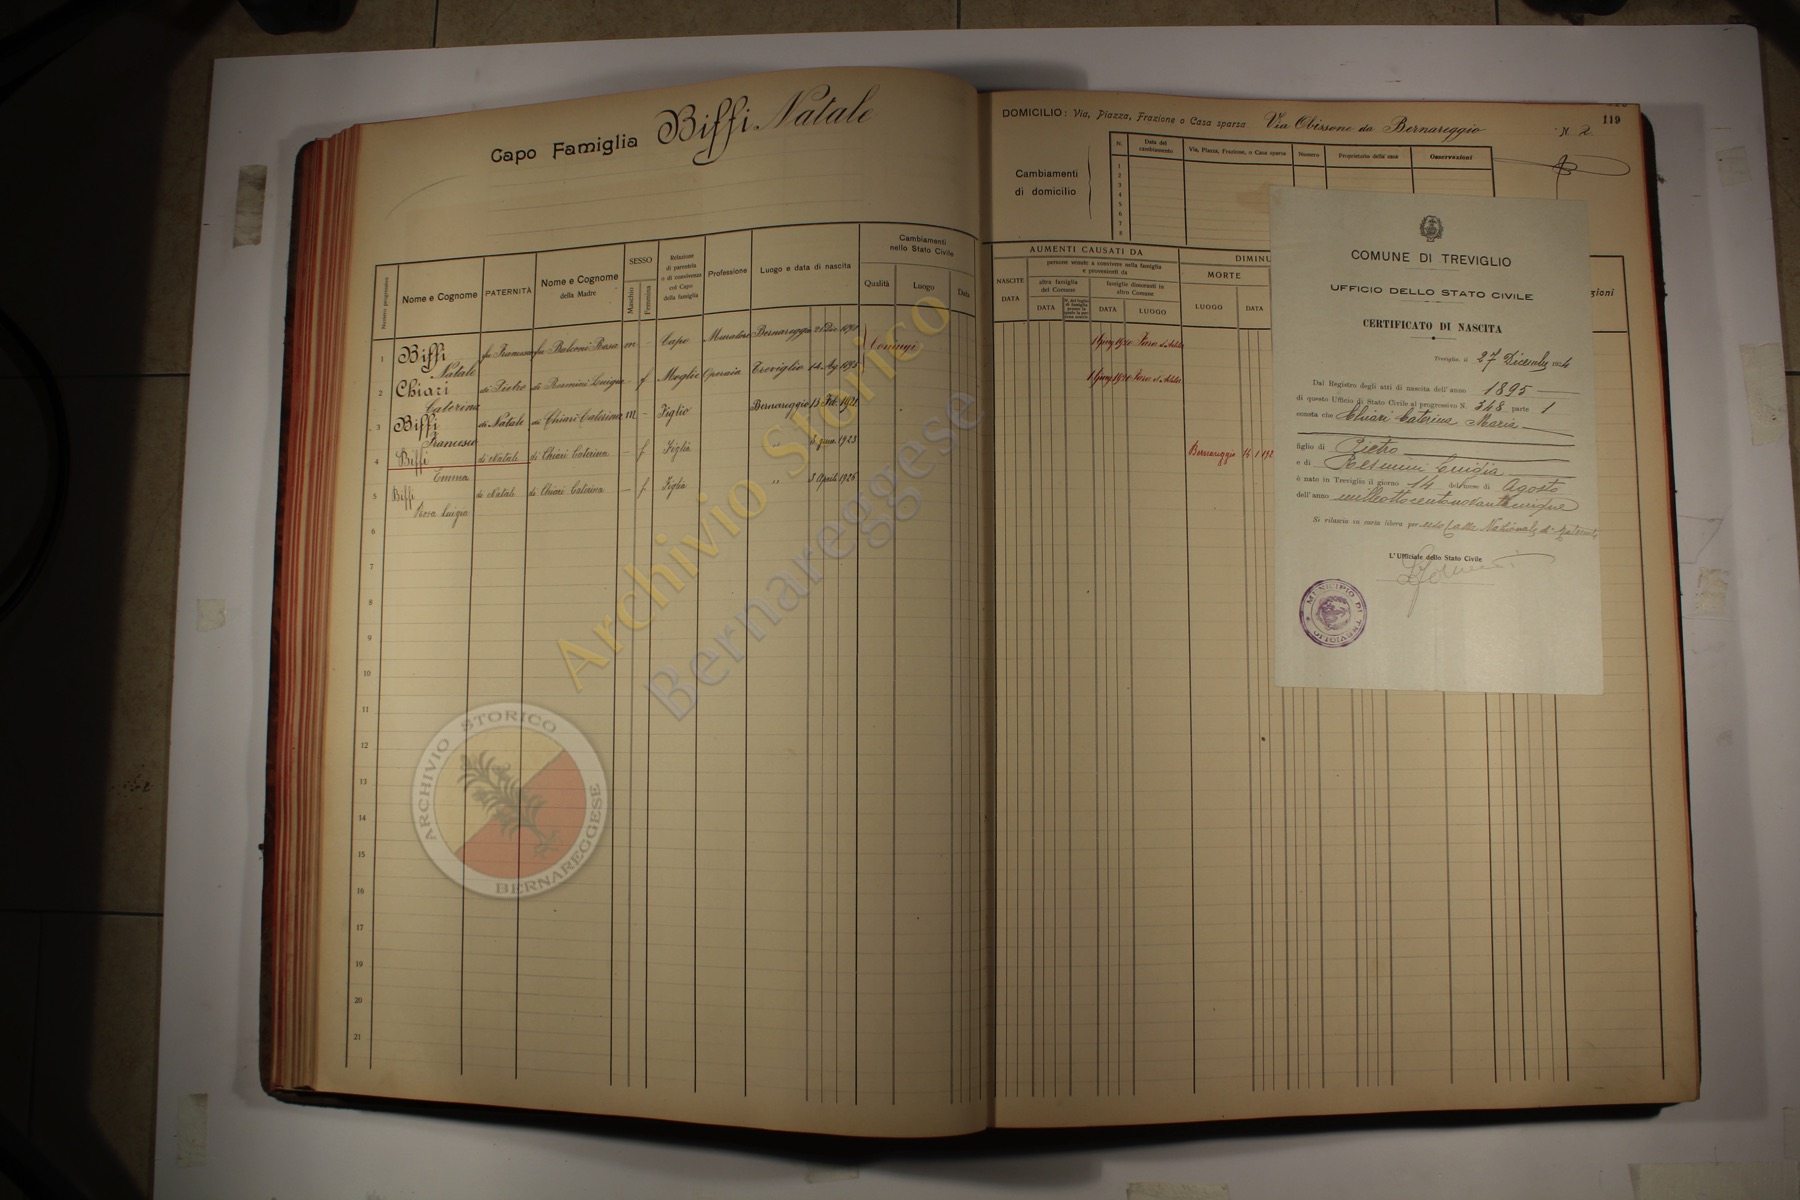 Capo Famiglia Biffi Natale
Numero progressivo
Nome e Cognome
PATERNITÀ
Nome e Cognome
della Madre
SESSO
Maschio
Femmina
Relazione
di parentela
o di convivenza
col Capo
della famiglia
Professione
Luogo e data di nascita
Cambiamenti
nello Stato Civile
Qualità
Luogo
Data
1 Biffi Natale fu Francesco fu Balconi Rosa m - Capo Muratore Bernareggio 21 Dic. Coniugi
2 Chiari Caterina di Pietro di Resmini Luigia - f Moglie Operaia Treviglio 14 Ag. 1895
3 Biffi Francesco di Natale di Chiari Caterina m - Figlio Bernareggio 13 Feb. 1921
4 Biffi Emma di Natale di Chiari Caterina - f. Figlia " 1923
5 Biffi Rosa Luigia di Natale di Chiari Caterina - f. Figlia " 3 Aprile 1926
6
7
8
9
10
11
12
13
14
15
16
17
18
19
20
21
119
DOMICILIO: Via, Piazza, Frazione o Casa sparsa Via Obissone da Bernareggio N. 2
Cambiamenti
di domicilio
N.
Data del
cambiamento
Via, Piazza, Frazione, o Casa sparsa
Numero
Proprietario della casa
Osservazioni
1
2
3
4
5
6
7
8
AUMENTI CAUSATI DA
NASCITE
DATA
persone venute a convivere nella famiglia
e provenienti da
altra famiglia
del Comune
DATA
famiglie dimoranti in
altro Comune
DATA
LUOGO
DIMINU
MORTE
LUOGO
DATA
zioni
1 Giug 1920
1 Giug 1920
Bernareggio 16 1 192
COMUNE DI TREVIGLIO
UFFICIO DELLO STATO CIVILE
CERTIFICATO DI NASCITA
Treviglio, il 27 Dicembre
Dal Registro degli atti di nascita dell'anno 1895
di questo Ufficio di Stato Civile al progressivo N. 348 parte 1
consta che Chiari Caterina Maria
figlio di Pietro
e di Resmini Luigia
è nato in Treviglio il giorno 14 del mese di Agosto
dell'anno milleottocentonovantacinque
Si rilascia in carta libera per uso Cassa Nazionale di Maternità
L'Ufficiale dello Stato Civile
MUNICIPIO DI TREVIGLIO
Archivio Storico
Bernareggese
ARCHIVIO STORICO
BERNAREGGESE